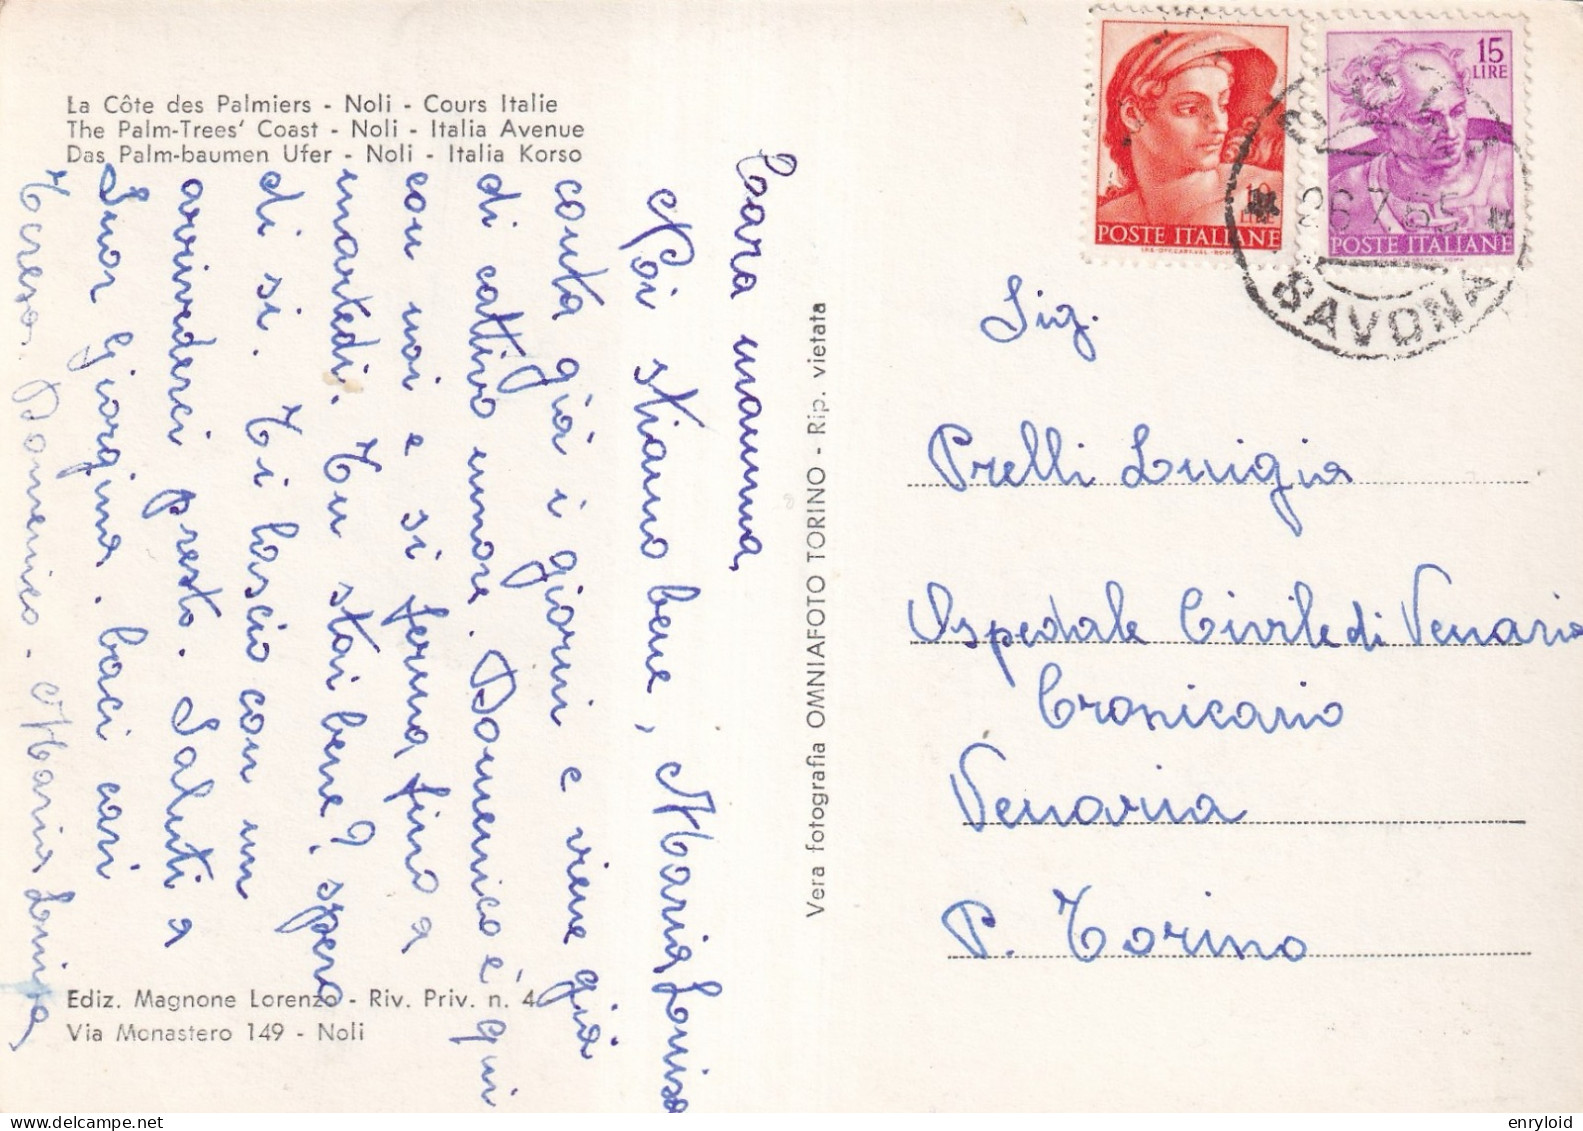 La Côte des Palmiers - Noli - Cours Italie
The Palm-Trees' Coast - Noli - Italia Avenue
Das Palm-baumen Ufer - Noli - Italia Korso
Cara mamma,
Noi stiamo bene, Maria Luisa
conta già i giorni e viene già
di cattivo umore. Domenico è qui
con noi e si ferma fino a
martedì. Tu stai bene? spero
di si. Ti lascio con un
arrivederci presto. Saluti a
Suor Giorgina. baci cari
Teresa. Domenico. Maria Luisa
Ediz. Magnone Lorenzo - Riv. Priv. n. 4
Via Monastero 149 - Noli
Vera fotografia OMNIAFOTO TORINO - Rip. vietata
10
LIRE
POSTE ITALIANE
15
LIRE
POSTE ITALIANE
26.7.65
SAVONA
Sig.
Prelli Luigia
Ospedale Civile di Venaria
Cronicario
Venaria
P. Torino
enryloid